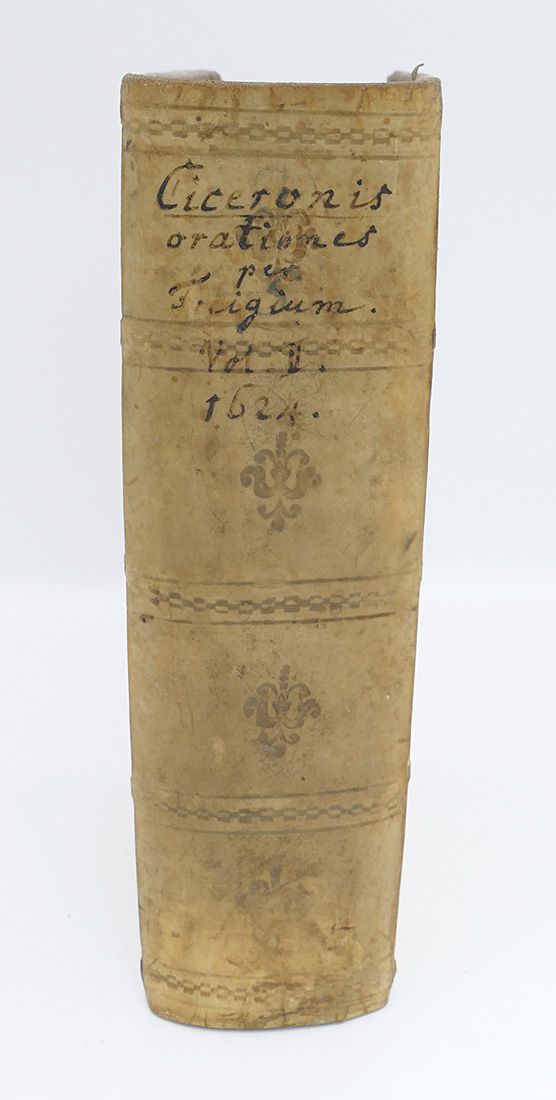 Ciceronis
orationes
per
Freigium.
Vol. I.
1624.